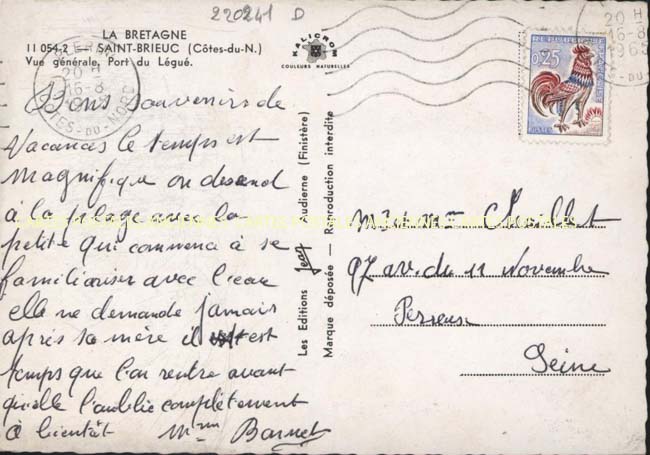 220241 D
LA BRETAGNE
11 054-2 — SAINT-BRIEUC (Côtes-du-N.)
Vue générale, Port du Légué.
KALICROM
COULEURS NATURELLES
20 H
16-8
CÔTES-DU-NORD
20 H
16-8
1963
0,25
POSTES
Bons souvenirs de
vacances le temps est
magnifique on descend
à la plage avec la
petite qui commence à se
familiariser avec l'eau
elle ne demande jamais
après sa mère il est
temps que l'on rentre avant
qu'elle l'oublie complètement
à bientôt Mme Barnet
Les Editions Jean Audierne (Finistère)
Marque déposée — Reproduction interdite
97 av. du 11 Novembre
Perreux
Seine